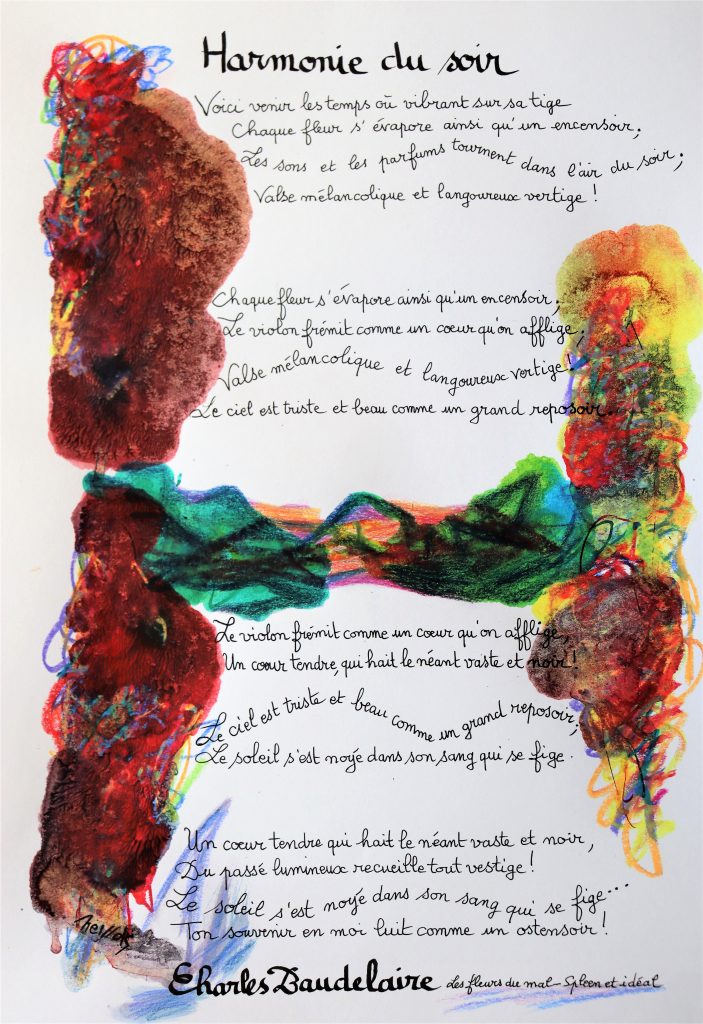 Harmonie du soir
Voici venir les temps où vibrant sur sa tige
Chaque fleur s'évapore ainsi qu'un encensoir;
Les sons et les parfums tournent dans l'air du soir;
Valse mélancolique et langoureux vertige!
Chaque fleur s'évapore ainsi qu'un encensoir;
Le violon frémit comme un coeur qu'on afflige;
Valse mélancolique et langoureux vertige!
Le ciel est triste et beau comme un grand reposoir.
Le violon frémit comme un coeur qu'on afflige,
Un coeur tendre, qui hait le néant vaste et noir!
Le ciel est triste et beau comme un grand reposoir;
Le soleil s'est noyé dans son sang qui se fige.
Un coeur tendre qui hait le néant vaste et noir,
Du passé lumineux recueille tout vestige!
Le soleil s'est noyé dans son sang qui se fige...
Ton souvenir en moi luit comme un ostensoir!
Charles Baudelaire Les fleurs du mal - Spleen et idéal